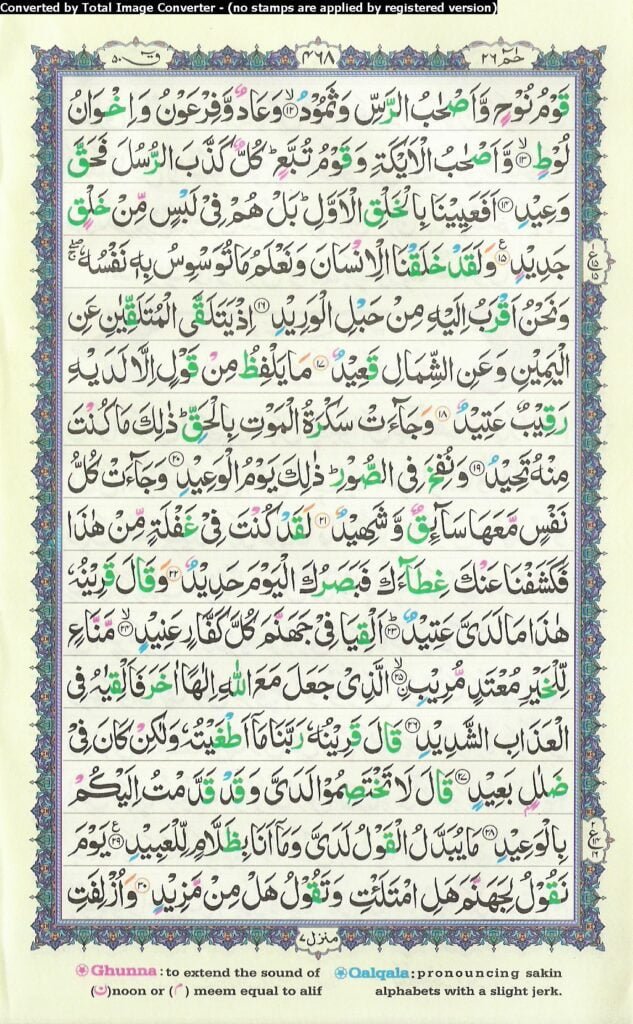 Converted by Total Image Converter - (no stamps are applied by registered version)
حٰمٓ ٢٦
٤٦٨
قٓ ٥٠
قَوْمُ نُوْحٍ وَّاَصْحٰبُ الرَّسِّ وَثَمُوْدُ ۙ﴿١٢﴾ وَعَادٌ وَّفِرْعَوْنُ وَاِخْوَانُ
لُوْطٍ ۙ﴿١٣﴾ وَّاَصْحٰبُ الْاَيْكَةِ وَقَوْمُ تُبَّعٍ ؕ كُلٌّ كَذَّبَ الرُّسُلَ فَحَقَّ
وَعِيْدِ ﴿١٤﴾ اَفَعَيِيْنَا بِالْخَلْقِ الْاَوَّلِ ؕ بَلْ هُمْ فِىْ لَبْسٍ مِّنْ خَلْقٍ
جَدِيْدٍ ﴿١٥﴾ وَلَقَدْ خَلَقْنَا الْاِنْسَانَ وَنَعْلَمُ مَا تُوَسْوِسُ بِهٖ نَفْسُهٗ ۖۚ
وَنَحْنُ اَقْرَبُ اِلَيْهِ مِنْ حَبْلِ الْوَرِيْدِ ﴿١٦﴾ اِذْ يَتَلَقَّى الْمُتَلَقِّيٰنِ عَنِ
الْيَمِيْنِ وَعَنِ الشِّمَالِ قَعِيْدٌ ﴿١٧﴾ مَا يَلْفِظُ مِنْ قَوْلٍ اِلَّا لَدَيْهِ
رَقِيْبٌ عَتِيْدٌ ﴿١٨﴾ وَجَآءَتْ سَكْرَةُ الْمَوْتِ بِالْحَقِّ ؕ ذٰلِكَ مَا كُنْتَ
مِنْهُ تَحِيْدُ ﴿١٩﴾ وَنُفِخَ فِى الصُّوْرِ ؕ ذٰلِكَ يَوْمُ الْوَعِيْدِ ﴿٢٠﴾ وَجَآءَتْ كُلُّ
نَفْسٍ مَّعَهَا سَآئِقٌ وَّشَهِيْدٌ ﴿٢١﴾ لَقَدْ كُنْتَ فِىْ غَفْلَةٍ مِّنْ هٰذَا
فَكَشَفْنَا عَنْكَ غِطَآءَكَ فَبَصَرُكَ الْيَوْمَ حَدِيْدٌ ﴿٢٢﴾ وَقَالَ قَرِيْنُهٗ
هٰذَا مَا لَدَىَّ عَتِيْدٌ ؕ﴿٢٣﴾ اَلْقِيَا فِىْ جَهَنَّمَ كُلَّ كَفَّارٍ عَنِيْدٍ ۙ﴿٢٤﴾ مَّنَّاعٍ
لِّلْخَيْرِ مُعْتَدٍ مُّرِيْبِ ۙ﴿٢٥﴾ الَّذِىْ جَعَلَ مَعَ اللّٰهِ اِلٰهًا اٰخَرَ فَاَلْقِيٰهُ فِى
الْعَذَابِ الشَّدِيْدِ ﴿٢٦﴾ قَالَ قَرِيْنُهٗ رَبَّنَا مَاۤ اَطْغَيْتُهٗ وَلٰكِنْ كَانَ فِىْ
ضَلٰلٍ بَعِيْدٍ ﴿٢٧﴾ قَالَ لَا تَخْتَصِمُوْا لَدَىَّ وَقَدْ قَدَّمْتُ اِلَيْكُمْ
بِالْوَعِيْدِ ﴿٢٨﴾ مَا يُبَدَّلُ الْقَوْلُ لَدَىَّ وَمَاۤ اَنَا بِظَلَّامٍ لِّلْعَبِيْدِ ﴿٢٩﴾ يَوْمَ
نَقُوْلُ لِجَهَنَّمَ هَلِ امْتَلَـئْتِ وَتَقُوْلُ هَلْ مِنْ مَّزِيْدٍ ﴿٣٠﴾ وَاُزْلِفَتِ
منزل ٧
Ghunna: to extend the sound of
(ن) noon or (م) meem equal to alif
Qalqala: pronouncing sakin
alphabets with a slight jerk.